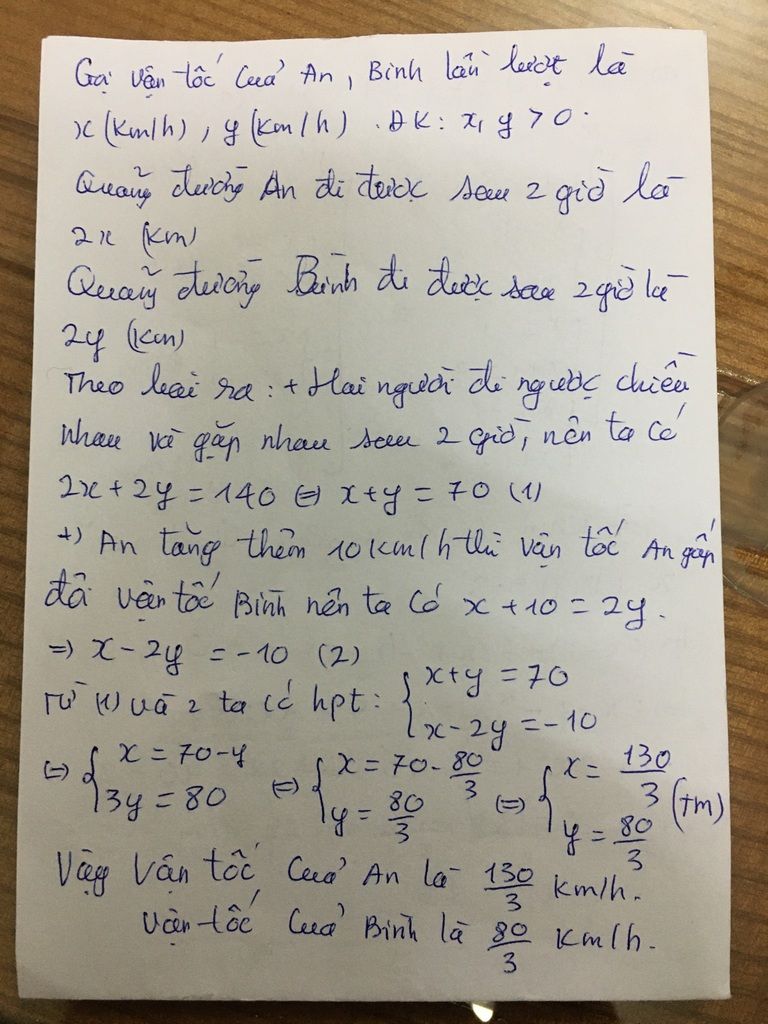 Gọi vận tốc của An, Bình lần lượt là
x (km/h), y (km/h). ĐK: x, y > 0.
Quãng đường An đi được sau 2 giờ là
2x (km)
Quãng đường Bình đi được sau 2 giờ là
2y (km)
Theo bài ra: + Hai người đi ngược chiều
nhau và gặp nhau sau 2 giờ, nên ta có
2x + 2y = 140 ⇔ x + y = 70 (1)
+) An tăng thêm 10 km/h thì vận tốc An gấp
đôi vận tốc Bình nên ta có x + 10 = 2y.
⇒ x - 2y = -10 (2)
Từ (1) và 2 ta có hpt: { x + y = 70
x - 2y = -10
⇔ { x = 70 - y
3y = 80
⇔ { x = 70 - 80/3
y = 80/3
⇔ { x = 130/3
y = 80/3 (tm)
Vậy vận tốc của An là 130/3 km/h.
vận tốc của Bình là 80/3 km/h.